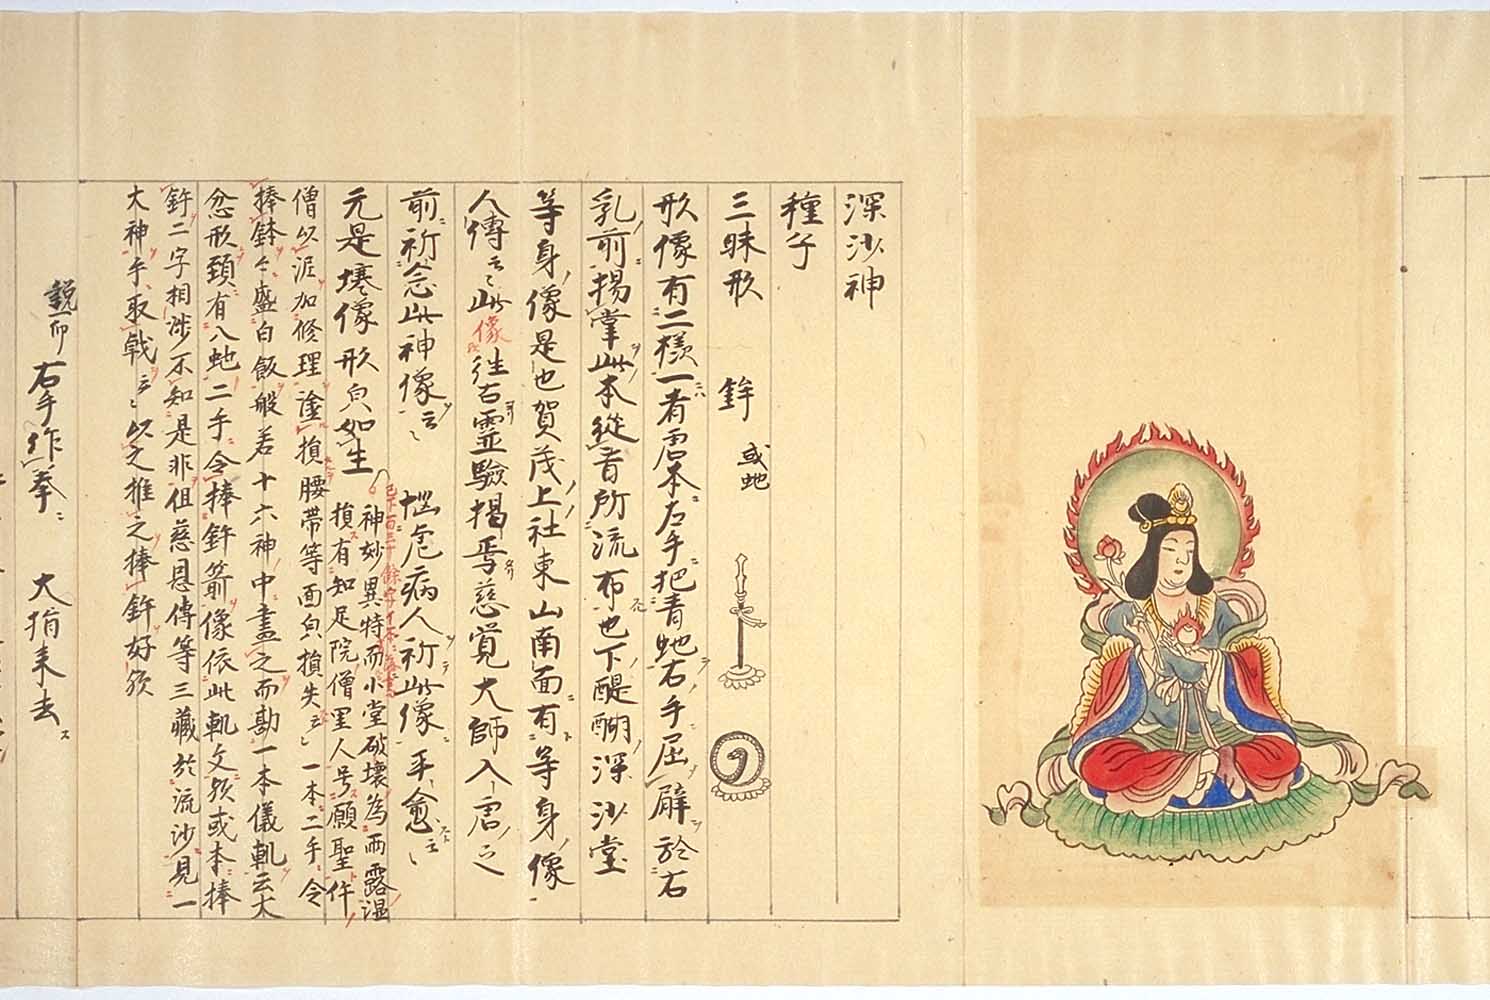 深沙神
種子
三昧形 鉾 或虵
形像有二樣一者唐本左手把青虵右手屈臂於右
乳前揚掌此本從昔所流布也下醍醐深沙堂
等身像是也賀茂上社東山南面有等身像
人傳云此像往古霊驗揭焉慈覚大師入唐之
前祈念此神像云々 惱危病人祈此像平愈云々
元是壊像形皃如生 神妙異特而小堂破壊為雨露湿
損有知足院僧里人号願聖仵
僧以泥加修理塗損腰帶等面皃損失云々一本二手令
捧鉢々盛白飯般若十六神中畫之而勘一本儀軌云大
忿形頚有八虵二手令捧釬箭像依此軌文欤或本捧
釬二字相渉不知是非但慈恩傳等三藏於流沙見一
大神手取戟云々以之推之捧釬好欤
說印 右手作拳 大指来去